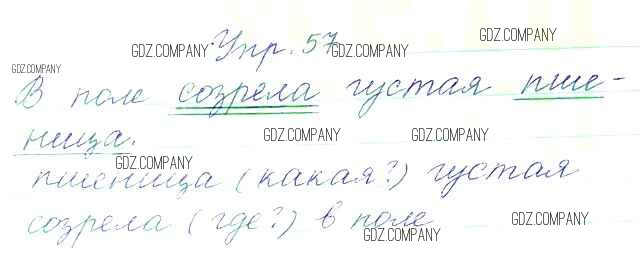 GDZ.COMPANY Упр. 57 GDZ.COMPANY
GDZ.COMPANY
В поле созрела густая пше-
ница. GDZ.COMPANY GDZ.COMPANY
GDZ.COMPANY
пшеница (какая?) густая
созрела (где?) в поле GDZ.COMPANY
GDZ.COMPANY